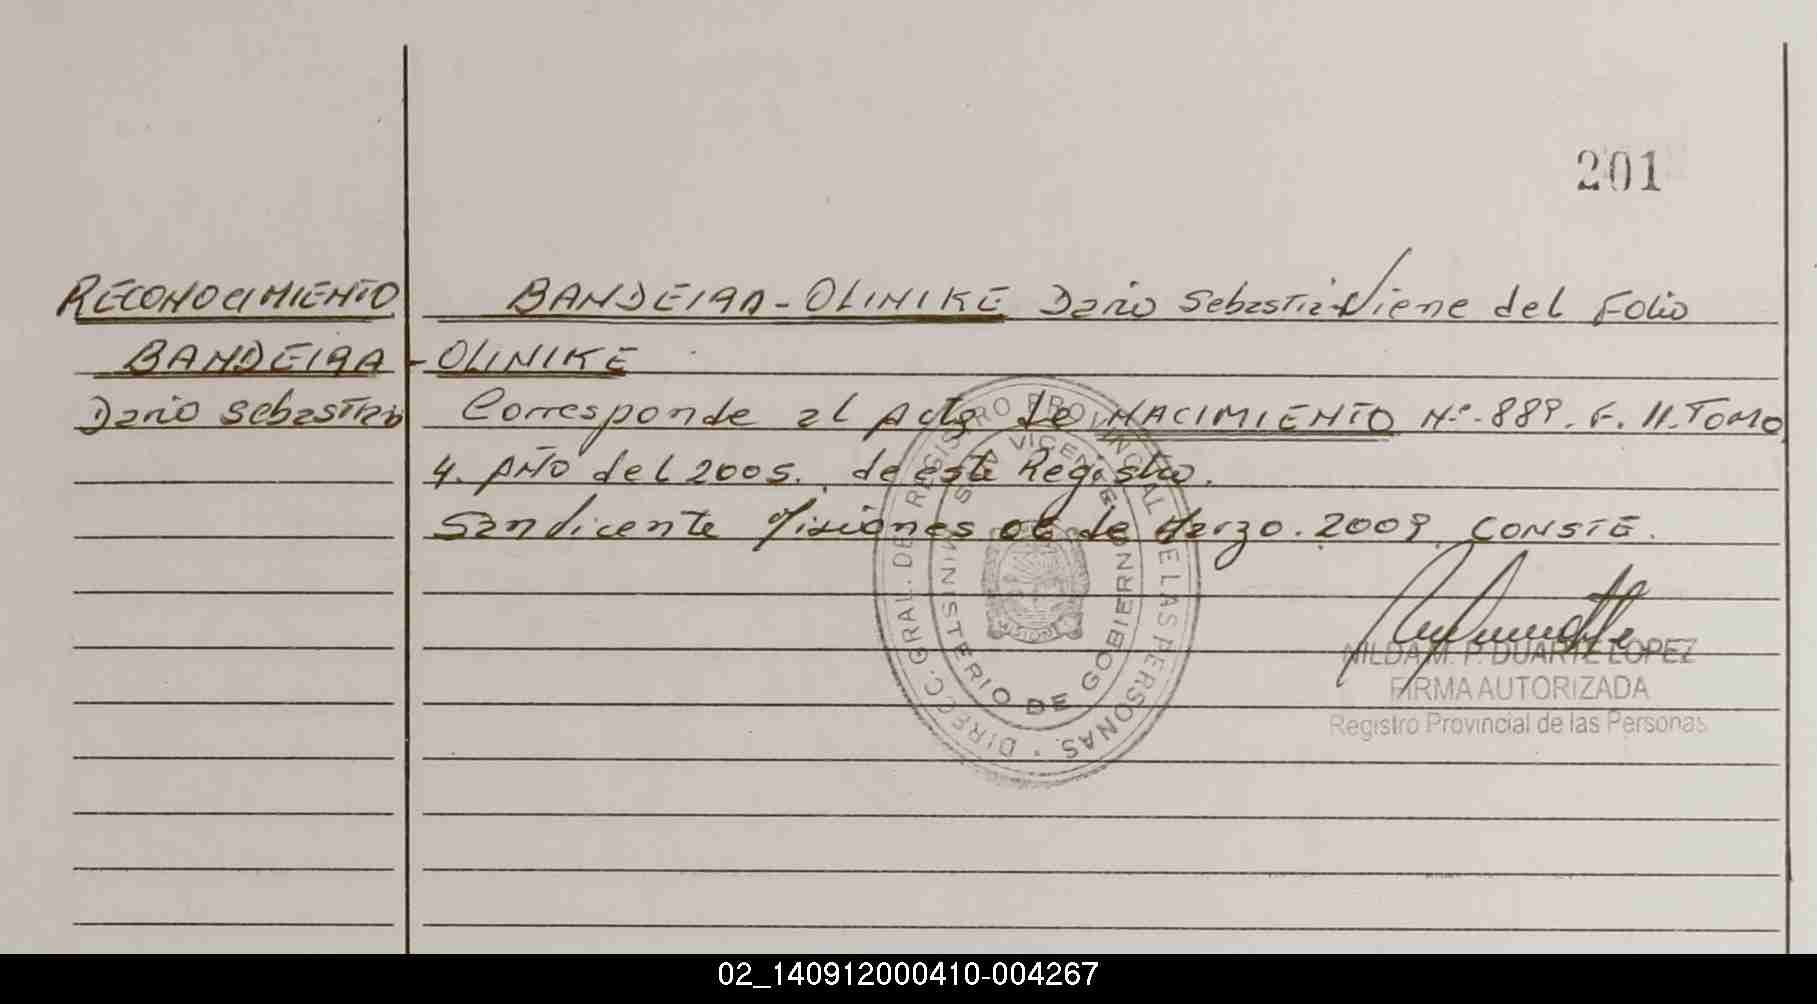 201
RECONOCIMIENTO BANDEIRA-OLINIKE Dario Sebastián Viene del Folio
BANDEIRA - OLINIKE
Dario Sebastian Corresponde al Acta de NACIMIENTO Nº.889. F. 11. TOMO
4. AÑO del 2005. de este Registro.
Sanvicente Misiones 06 de Marzo. 2009. CONSTE.
DIRECC. GRAL. DE REGISTRO PROVINCIAL DE LAS PERSONAS
MINISTERIO DE GOBIERNO
SAN VICENTE
MISIONES
NILDA M. P. DUARTE LOPEZ
FIRMA AUTORIZADA
Registro Provincial de las Personas
02_140912000410-004267